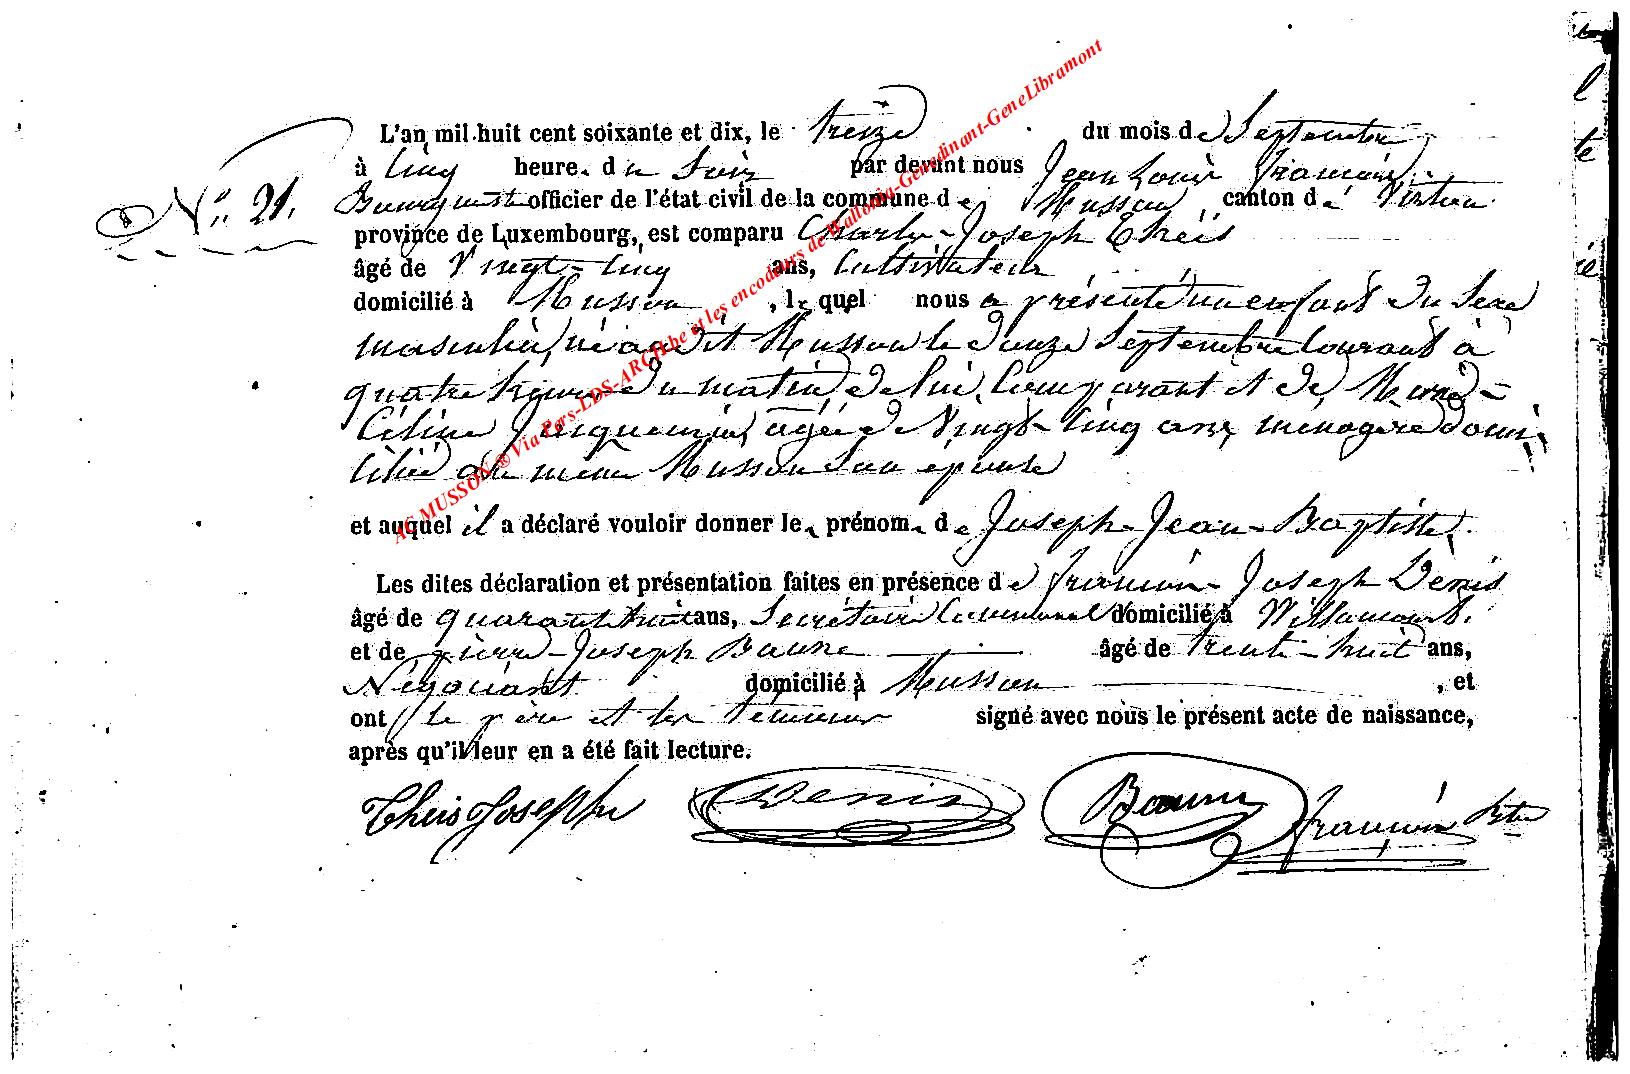 L'an mil huit cent soixante et dix, le treize du mois de Septembre
à cinq heure. du Soir par devant nous Jean Louis François
N° 21. Bourgmestre officier de l'état civil de la commune de Musson canton de Virton
province de Luxembourg, est comparu Charles-Joseph Theis
âgé de Vingt-Cinq ans, Cultivateur
domicilié à Musson, lequel nous a présenté un enfant du Sexe
masculin, né audit Musson le douze Septembre courant à
quatre heures du matin, de lui Comparant et de Marie-
Céline Jacquemin, agée de Vingt-Cinq ans, ménagère domi-
ciliée au même Musson Son épouse
et auquel il a déclaré vouloir donner le prénom de Joseph-Jean-Baptiste.
Les dites déclaration et présentation faites en présence de François-Joseph Denis
âgé de quarante huit ans, Secrétaire Communal domicilié à Villancourt.
et de pierre-Joseph Baune âgé de trente-huit ans,
Négociant domicilié à Musson, et
ont le père et les témoins signé avec nous le présent acte de naissance,
après qu'il leur en a été fait lecture.
Theis Joseph Denis Baune François
AC MUSSON ® Via Pers-LDS-ARCH.be et les encodeurs de Wallonia-Genedinant-GeneLibramont